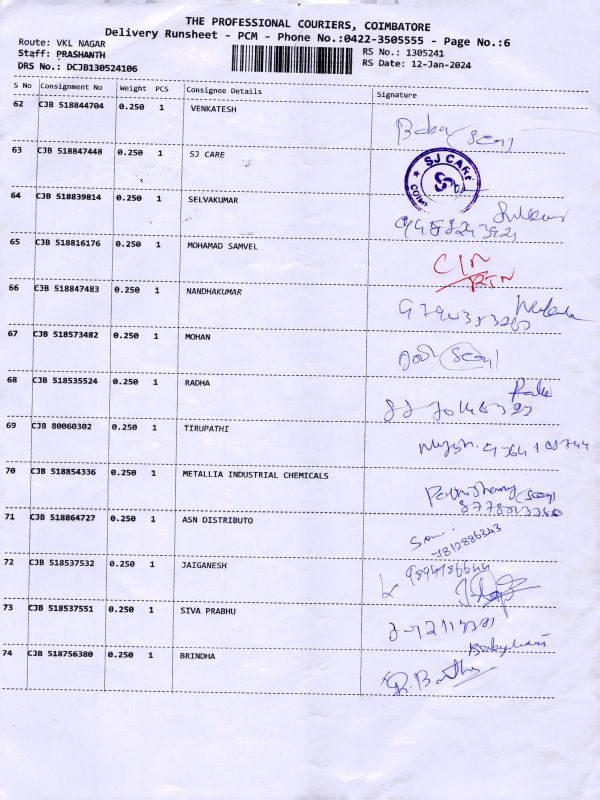 THE PROFESSIONAL COURIERS, COIMBATORE
Delivery Runsheet - PCM - Phone No.:0422-3505555 - Page No.:6
Route: VKL NAGAR RS No.: 1305241
Staff: PRASHANTH RS Date: 12-Jan-2024
DRS No.: DCJB130524106
S No Consignment No Weight PCS Consignee Details Signature
62 CJB 518844704 0.250 1 VENKATESH
63 CJB 518847448 0.250 1 SJ CARE SJ CARE
64 CJB 518839814 0.250 1 SELVAKUMAR
65 CJB 518816176 0.250 1 MOHAMAD SAMVEL C/N RTN
66 CJB 518847483 0.250 1 NANDHAKUMAR
67 CJB 518573482 0.250 1 MOHAN
68 CJB 518535524 0.250 1 RADHA
69 CJB 80060302 0.250 1 TIRUPATHI
70 CJB 518854336 0.250 1 METALLIA INDUSTRIAL CHEMICALS
71 CJB 518864727 0.250 1 ASN DISTRIBUTO
7812886343
72 CJB 518537532 0.250 1 JAIGANESH
73 CJB 518537551 0.250 1 SIVA PRABHU
74 CJB 518756380 0.250 1 BRINDHA